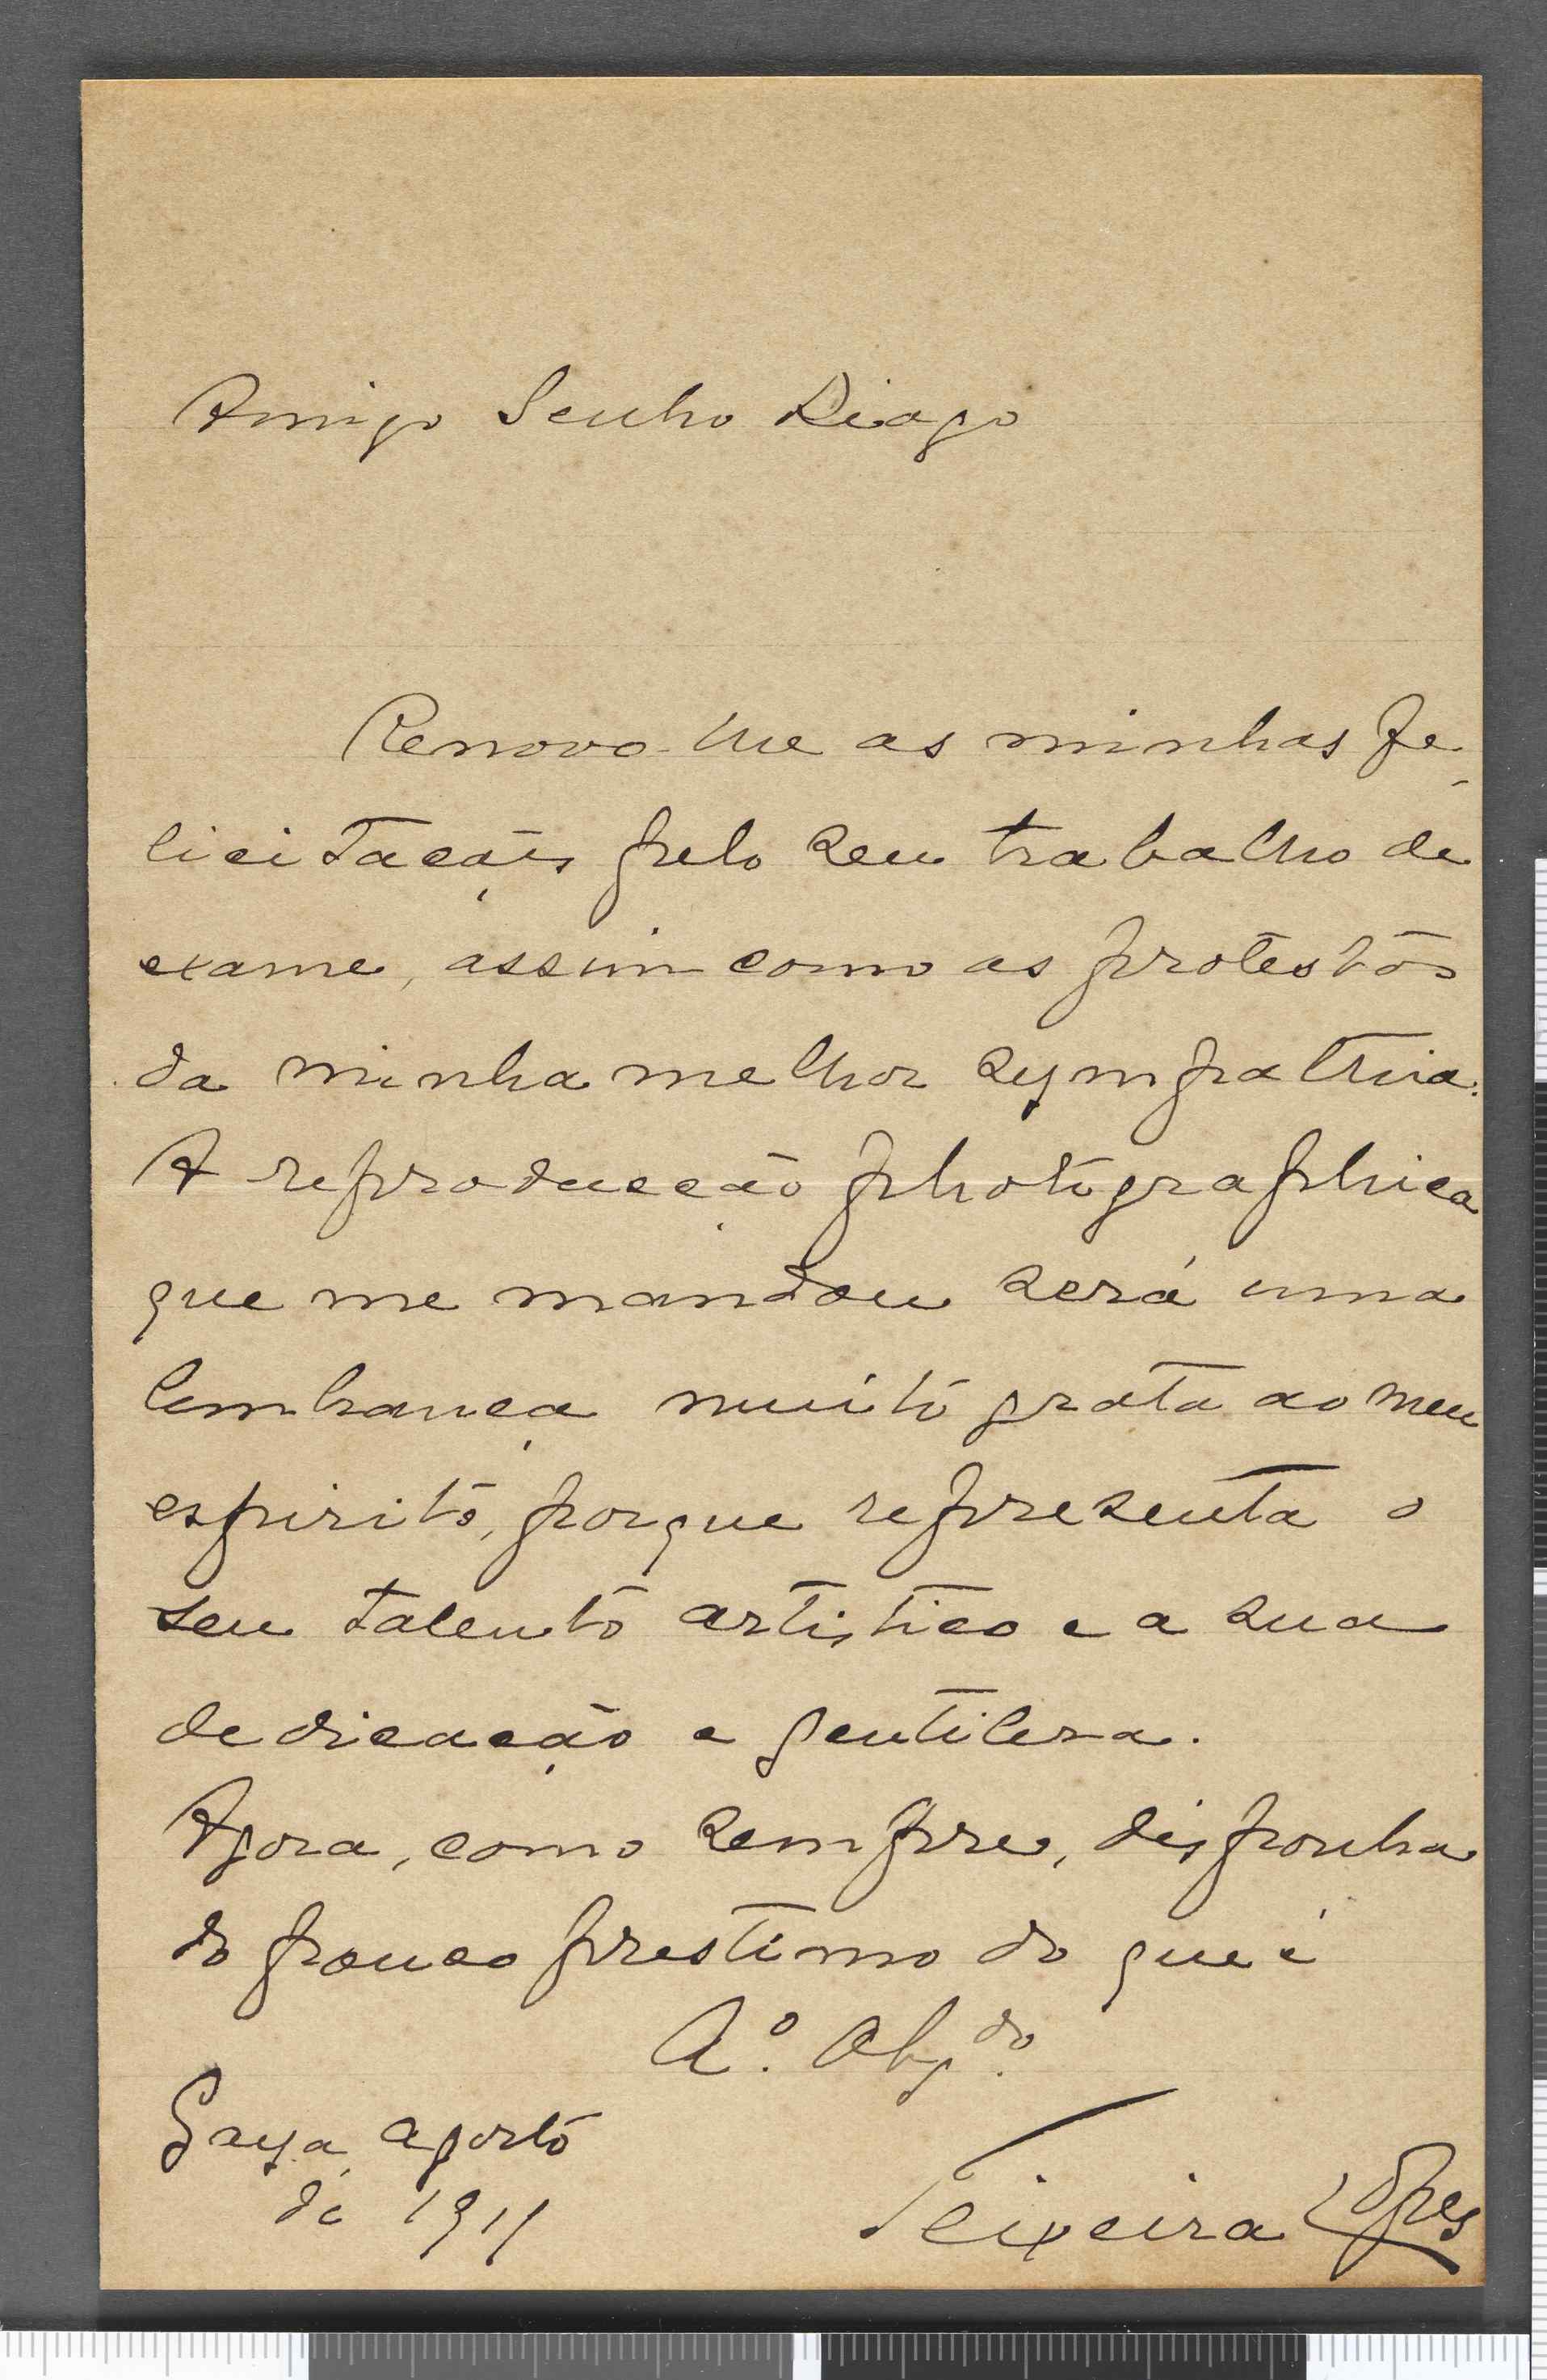 Amigo Senhor Diogo
Renovo-lhe as minhas fe-
licitações pelo seu trabalho de
exame, assim como os protestos
da minha melhor sympathia.
A reproducção photographica
que me mandou será uma
lembrança muito grata ao meu
espirito, porque representa o
seu talento artistico e a sua
dedicação e gentileza.
Agora, como sempre, disponha
do pouco prestimo do que é
Aº. Obgdo.
Gaya, agosto
de 1911
Teixeira Lopes